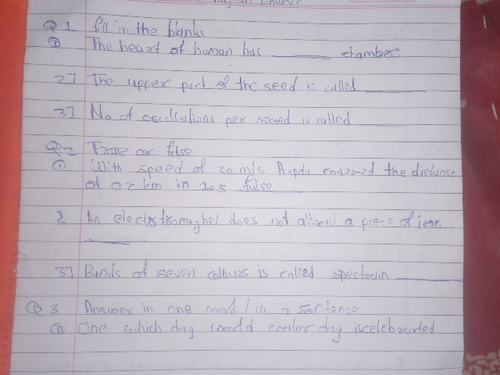 Q 1 fill in the blanks
1) The heart of human has ______ chambes
2] The upper part of the seed is called ______
3] No of oscillations per second is called ______
Q 2 True or false
1) With speed of 20 m/s covered the distance
of 0.2 km in 20 s false
2 An electromagnet does not attract a piece of iron
______
3] Bands of seven colours is called spectrum ______
Q 3 Answer in one word / in a sentence
1) One which day world day is celebrated